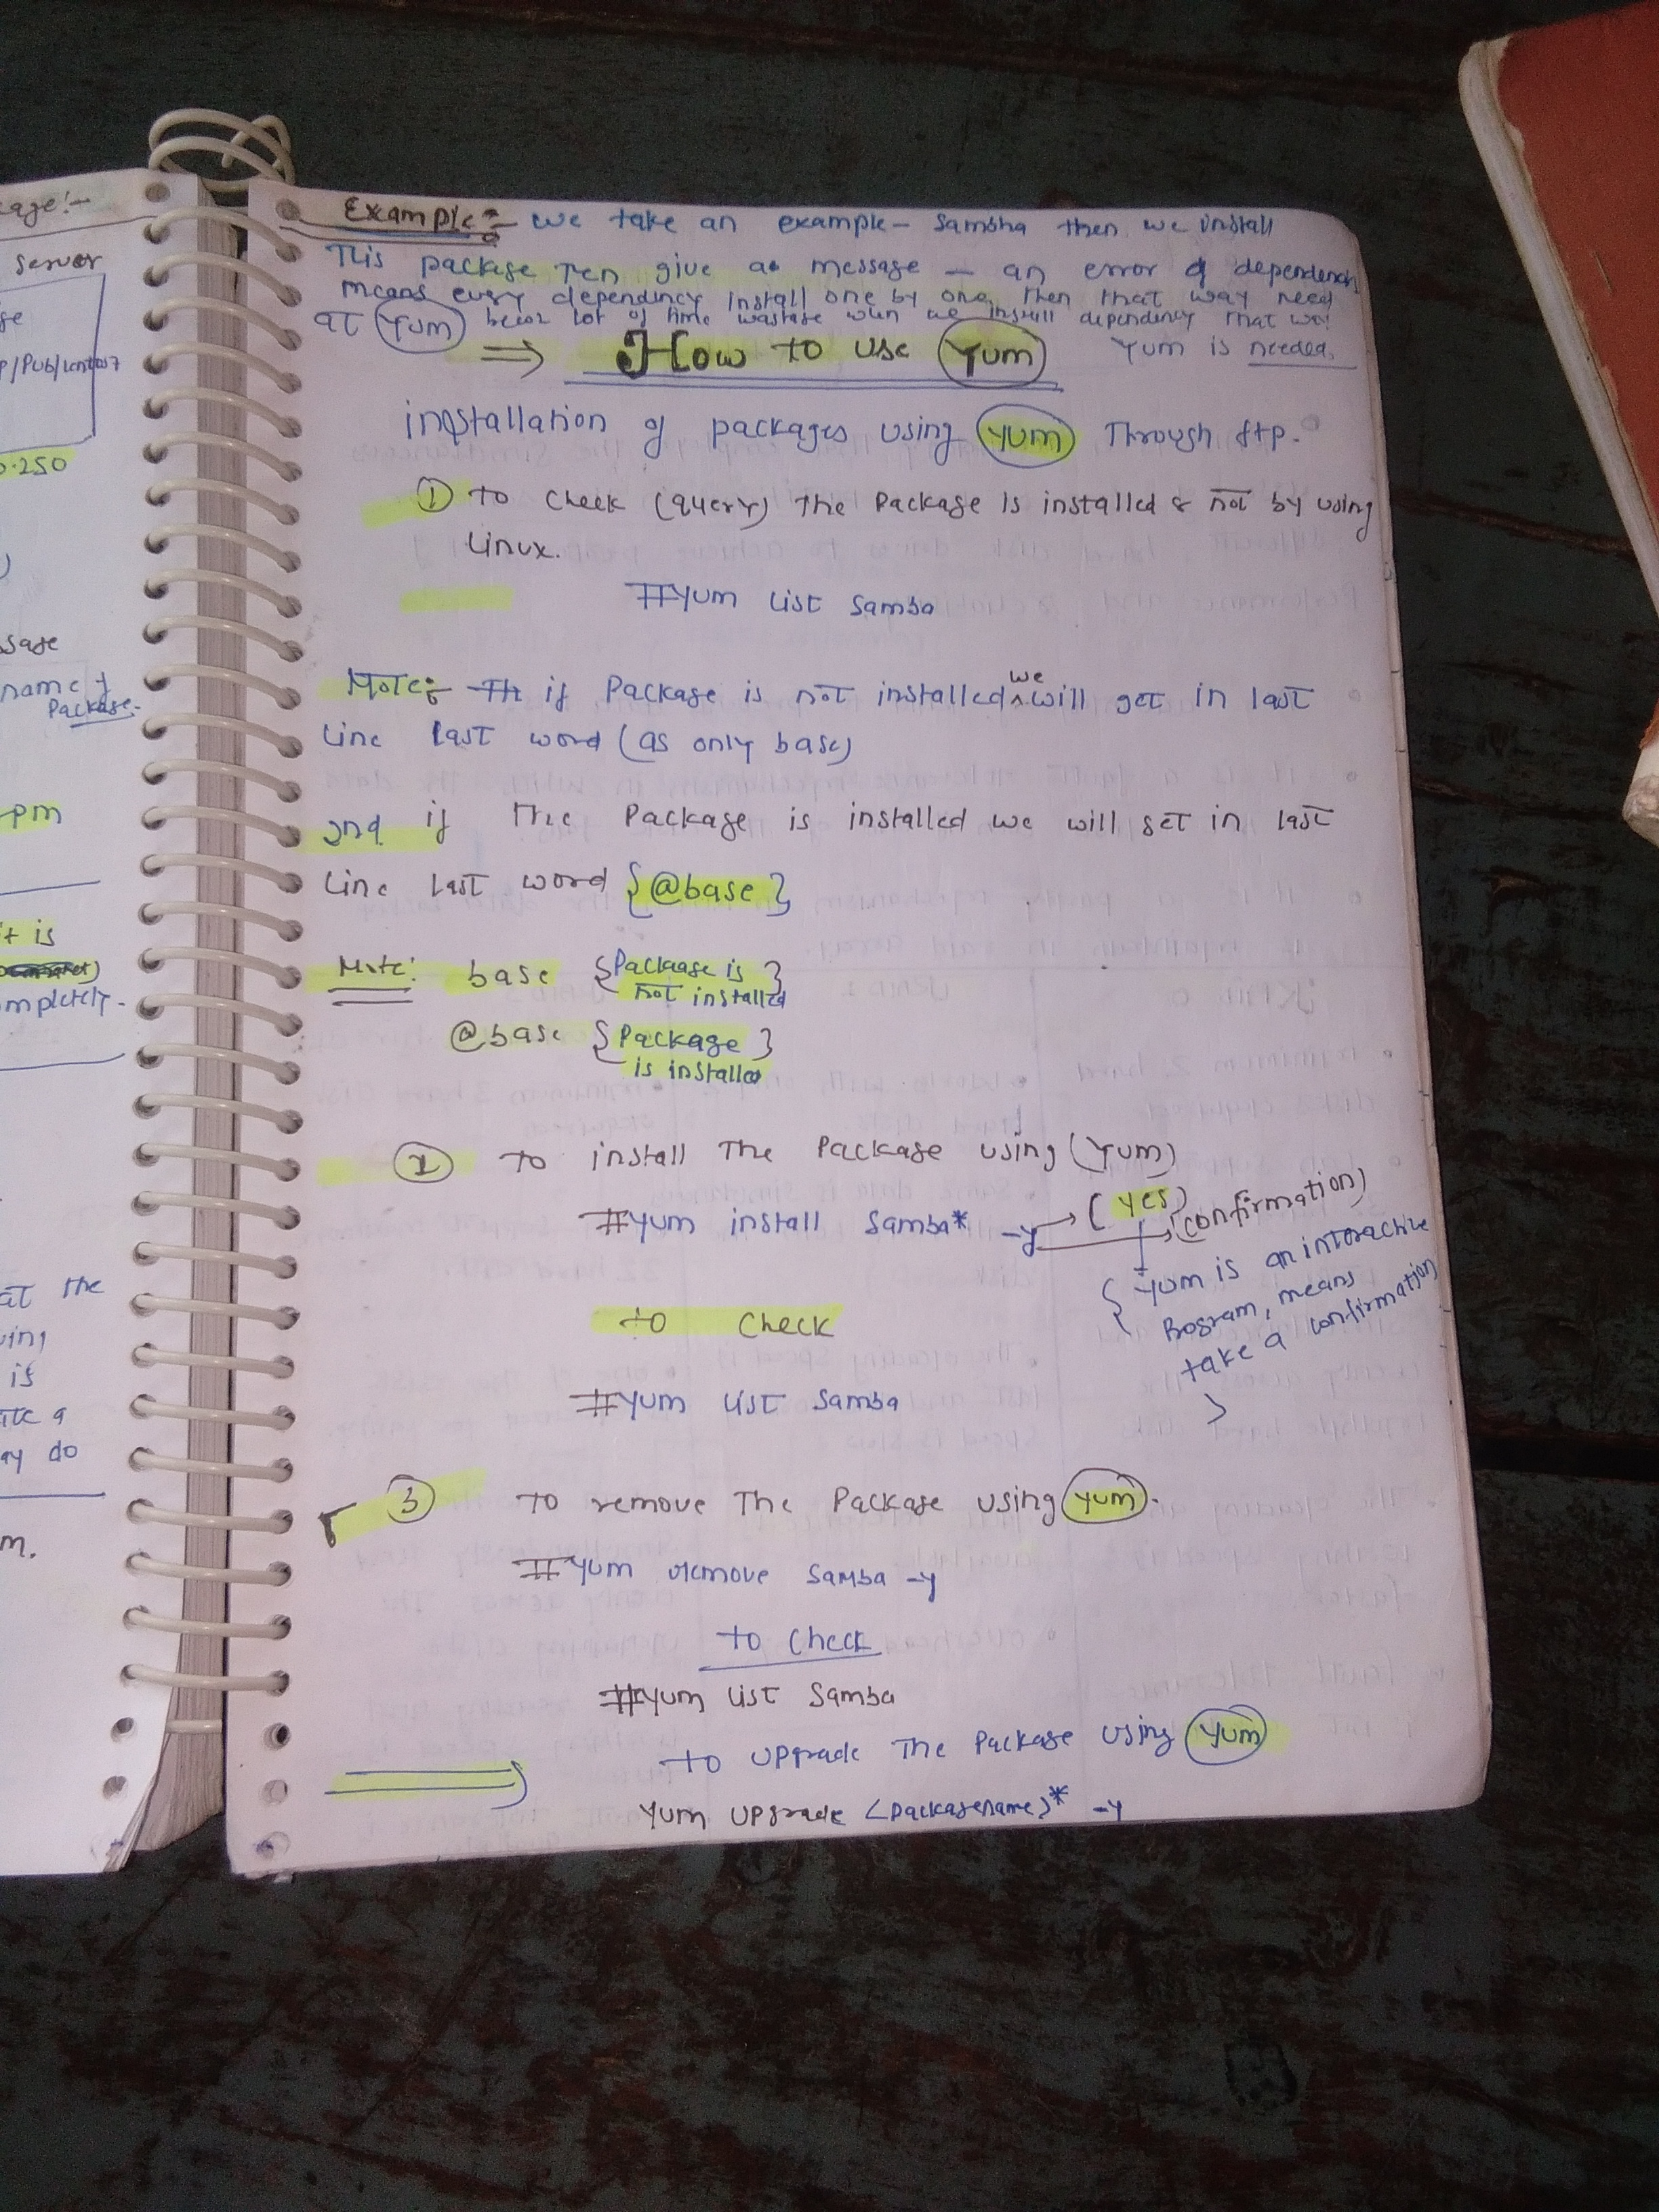 cage:-
server
ge
p/Pub/centos7
0.250
)
sage
name of
Package.
rpm
it is
mpletely.
at the
wing
is
ate a
ay do
m.
Example:- we take an example - Sambha then we install
This package then give a message - an error of dependency
means every dependency install one by one, then that way need
at Yum lot of time wastage when we install dependency that way
Yum is needed.
=> How to use Yum
installation of packages using Yum Through ftp.
① to check (query) the Package is installed & not by using
Linux.
#Yum List Samba
Note:- if Package is not installed we will get in last
line last word (as only base)
and if the Package is installed we will get in last
Line last word {@base}
Note: base {Package is
not installed}
@base {Package
is installed}
② To install The Package using (Yum)
#Yum install Samba* -y → (Yes)
(confirmation)
{Yum is an interactive
Program, means
take a confirmation
}
to Check
#Yum List Samba
3 To remove The Package using Yum.
#Yum remove Samba -y
to check
#Yum List Samba
to upgrade The Package using Yum
Yum upgrade <packagename>* -y